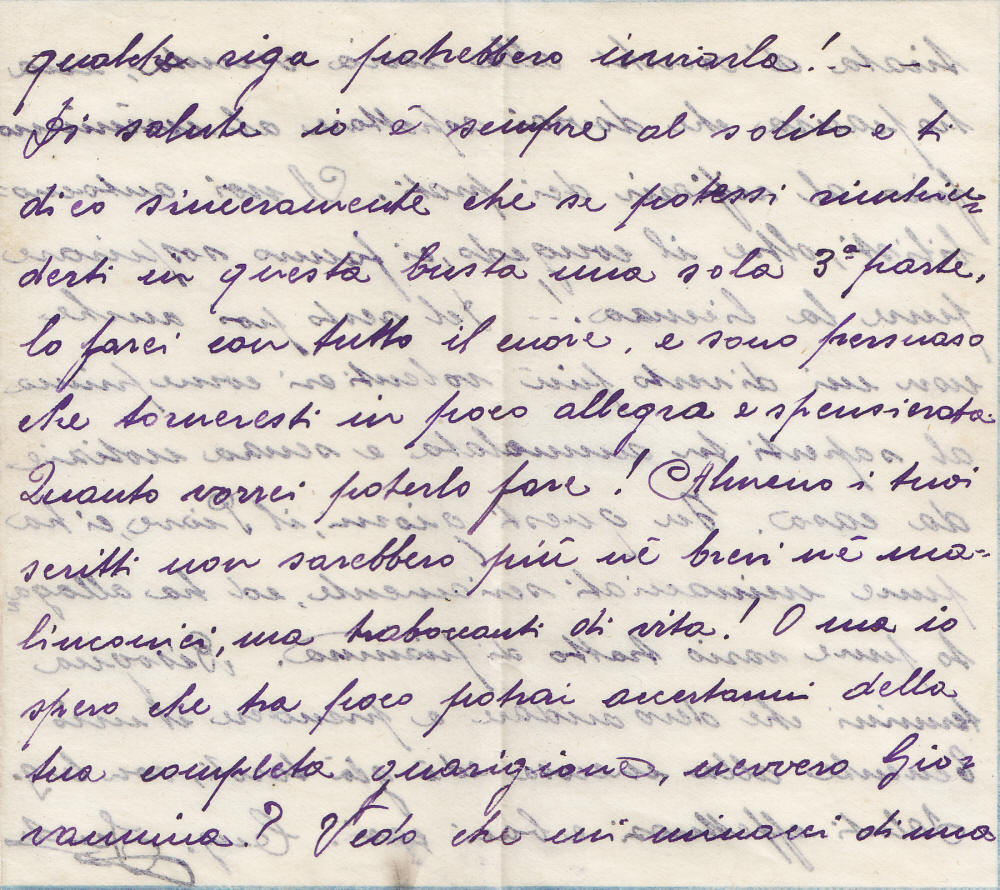 qualche riga potrebbero inviarla! - -
Di salute io è sempre al solito e ti
dico sinceramente che se potessi rinchiu=
derti in questa busta una sola 3ª parte,
lo farei con tutto il cuore, e sono persuaso
che torneresti in poco allegra e spensierata.
Quanto vorrei poterlo fare! Almeno i tuoi
scritti non sarebbero più nè brevi nè ma=
linconici, ma traboccanti di vita! O ma io
spero che tra poco potrai accertarmi della
tua completa guarigione, nevvero Gio=
vannina? Vedo che mi minacci di una